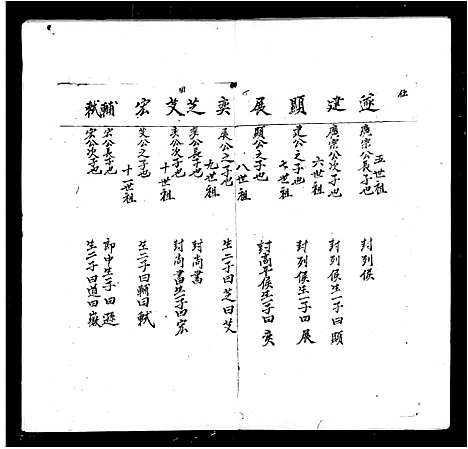 遊
廣宗公長子也
五世祖
封列侯
建
廣宗公次子也
六世祖
封列侯生一子曰顯
顯
建公之子也
七世祖
封列侯生一子曰展
展
顯公之子也
八世祖
封高平侯生一子曰奕
奕
展公之子也
九世祖
生二子曰芝曰艾
芝
奕公長子也
封尚書
艾
奕公次子也
十世祖
封尚書生一子曰宏
宏
艾公之子也
十一世祖
生二子曰輔曰軾
輔
宏公長子也
郎中生一子曰遜
軾
宏公次子也
生二子曰道曰嶽